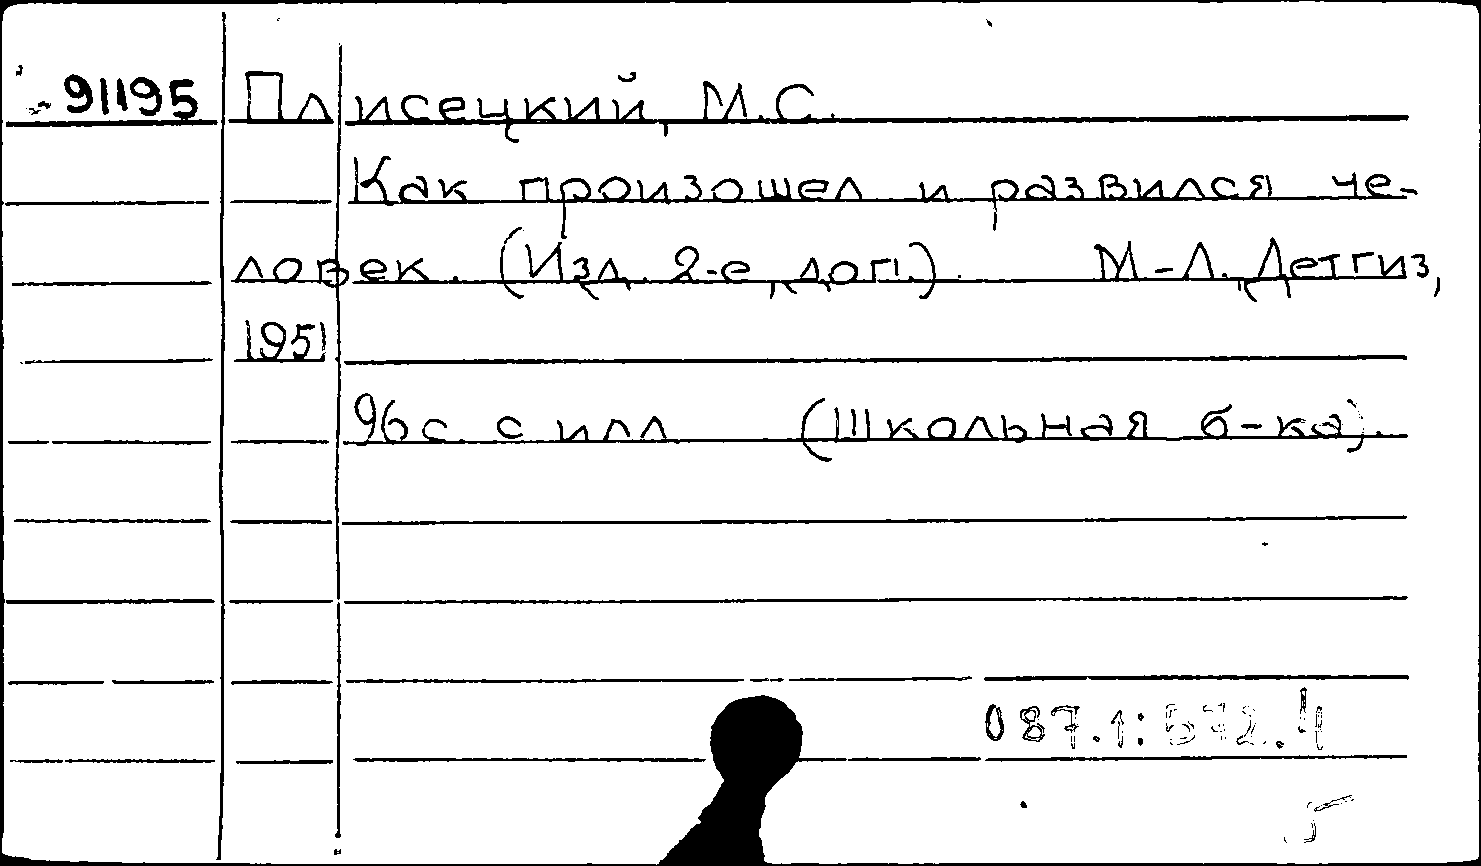 91195 Плисецкий, М.С.
Как произошел и развился че-
ловек. (Изд. 2-е, доп.). М-Л., Детгиз,
1951
96 с. с илл (Школьная б-ка).
087.1:572.4
5